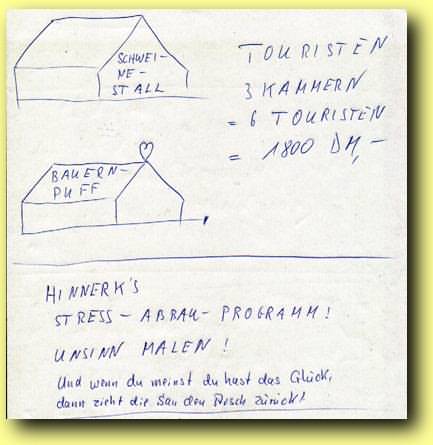 SCHWEI-
NE-
STALL
TOURISTEN
3 KAMMERN
= 6 TOURISTEN
= 1800 DM,-
BAUERN-
PUFF
HINNERK'S
STRESS-ABBAU-PROGRAMM!
UNSINN MALEN!
Und wenn du meinst du hast das Glück,
dann zieht die Sau den Aesch zurück!